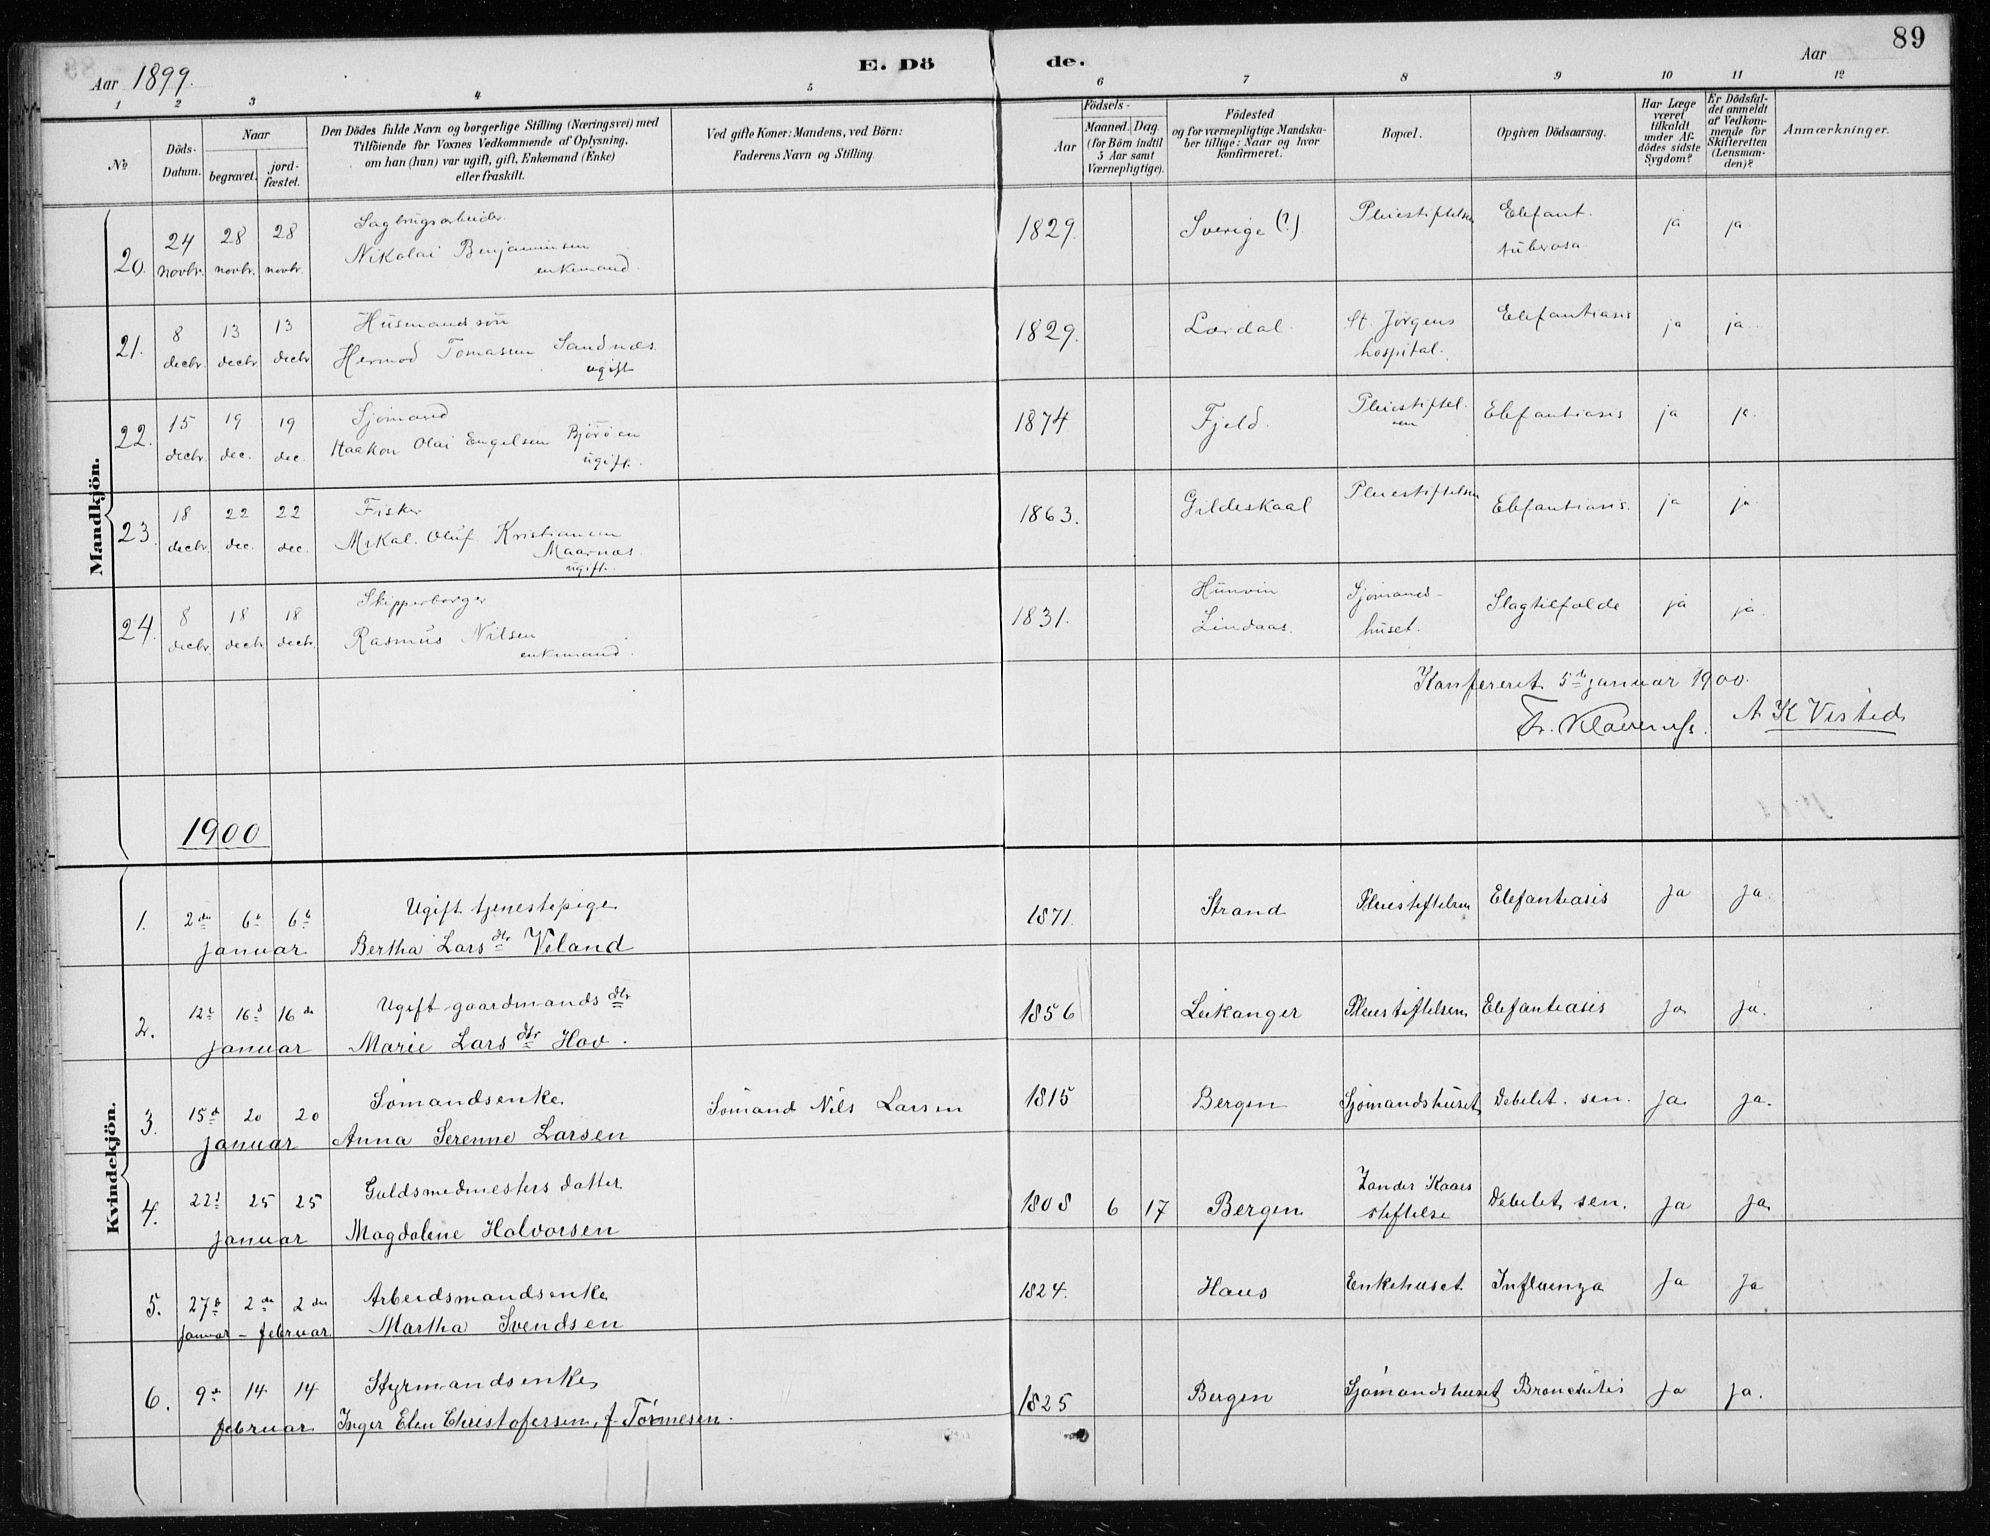 89
Aar 1899.
E. Dö de.
Aar
1 2 3 4 5 6 7 8 9 10 11 12
No
Döds-Datum.
Naar
begravet.
jordfæstet.
Den Dödes fulde Navn og borgerlige Stilling (Næringsvei) med
Tilföiende for Voxnes Vedkommende af Oplysning,
om han (hun) var ugift, gift, Enkemand (Enke)
eller fraskilt.
Ved gifte Koner: Mandens, ved Börn:
Faderens Navn og Stilling.
Födsels-
Aar
Maaned. Dag.
(for Börn indtil
5 Aar samt
Værnepligtige).
Födested
og for værnepligtige Mandska-
ber tillige: Naar og hvor
konfirmeret.
Bopæl.
Opgiven Dödsaarsag.
Har Læge
været
tilkaldt
under Af-
dödes sidste
Sygdom?
Er Dödsfal-
det anmeldt
af Vedkom-
mende for
Skifteretten
(Lensman-
den)?
Anmærkninger.
Mandkjön.
20. 24 novbr. 28 novbr. 28 novbr.
Sagbrugsarbeider.
Nikolai Benjaminsen
enkemand.
1829. Sverige (?). Pleiestiftelsen Elefant.
tuberosa ja ja
21. 8 decbr. 13 decbr 13 decbr
Husmandsøn
Hermod Tomassen Sandnæs.
ugift
1829. Lærdal. St. Jørgens
hospital. Elefantiasis ja ja
22. 15 decbr. 19 dec. 19 dec.
Sjømand
Haakon Olai Engelsen Bjørøen
ugift.
1874 Fjeld. Pleiestiftel-
sen Elefantiasis ja ja
23. 18 decbr. 22 dec. 22 dec.
Fisker
Mikal. Oluf Kristiansen
Maarnæs.
ugift.
1863. Gildeskaal Pleiestiftelsen Elefantiasis. ja ja
24. 8 decbr. 18 decbr 18 decbr.
Skipperborger
Rasmus Nilsen
enkemand.
1831. Hunvin
Lindaas. Sjømands-
huset. Slagtilfælde ja ja.
Konfereret 5te januar 1900.
A K Visted
1900
Kvindekjön.
1. 2den 6te 6te januar
Ugift tjenestepige
Bertha Larsdtr Veland
1871. Strand Pleiestiftelsen Elefantiasis ja ja.
2. 12te 16de 16de januar
Ugift gaardmandsdtr
Marie Larsdtr Hov.
1856 Leikanger Pleiestiftelsen Elefantiasis ja ja.
3. 15de 20 20 januar
Sømandsenke
Anna Serenne Larsen
Sømand Nils Larsen
1815 Bergen Sjømandshuset Debilit. sen. ja ja.
4. 22de 25 25 januar
Guldsmedmesters datter
Magdalene Halvorsen
1808 6 17 Bergen Zander Kaaes
stiftelse Debilit. sen. ja ja
5. 27de 2den 2den
januar - februar
Arbeidsmandsenke
Martha Svendsen
1824. Haus Enkehuset Influenza ja ja
6. 9de 14 14 februar
Styrmandsenke
Inger Elen Christofersen, f. Tørmesen.
1825 Bergen Sjømandshuset Bronchitis ja ja.